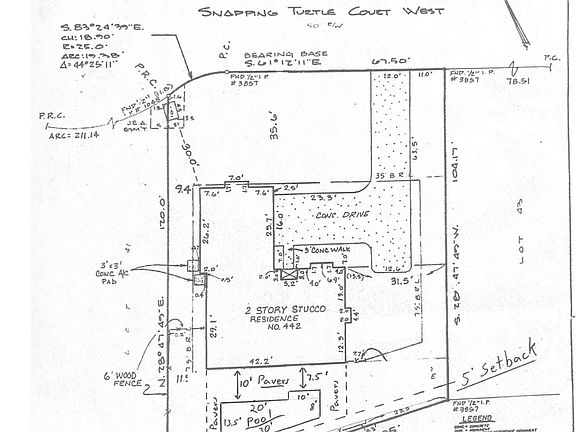 SNAPPING TURTLE COURT WEST
50' R/W
S. 83°24'39"E.
CH: 18.90'
R=25.0'
ARC: 19.38'
Δ= 44°25'11"
P.C.
BEARING BASE
S. 61°12'11"E
67.50'
P.C.
FND 1/2" I.P.
# 3857
12.0'
11.0'
FND 1/2" I.P.
# 3857
78.51
P.R.C.
P.R.C.
ARC= 211.14
35.6'
30.0'
63.5'
104.17'
35' B.R.L.
9.4
7.0'
7.6'
7.6'
2.5'
23.3'
CONC. DRIVE
120.0'
26.2'
25.7'
16.0'
LOT 43
3' CONC WALK
3'x3'
CONC A/C
PAD
2.0'
12.6'
31.5'
5.2'
13.0'
2 STORY STUCCO
RESIDENCE
NO. 442
4.4'
29.1'
7.5' B.R.L.
7.5' B.R.L.
12.3'
N. 28°47'49"E.
S. 28°47'49"W.
6' WOOD
FENCE
42.2'
10' Pavers
7.5'
5' Setback
Pavers
20'
10'
8'
13.5'
Pool
30'
Pavers
FND 1/2" I.P.
# 3857
LEGEND